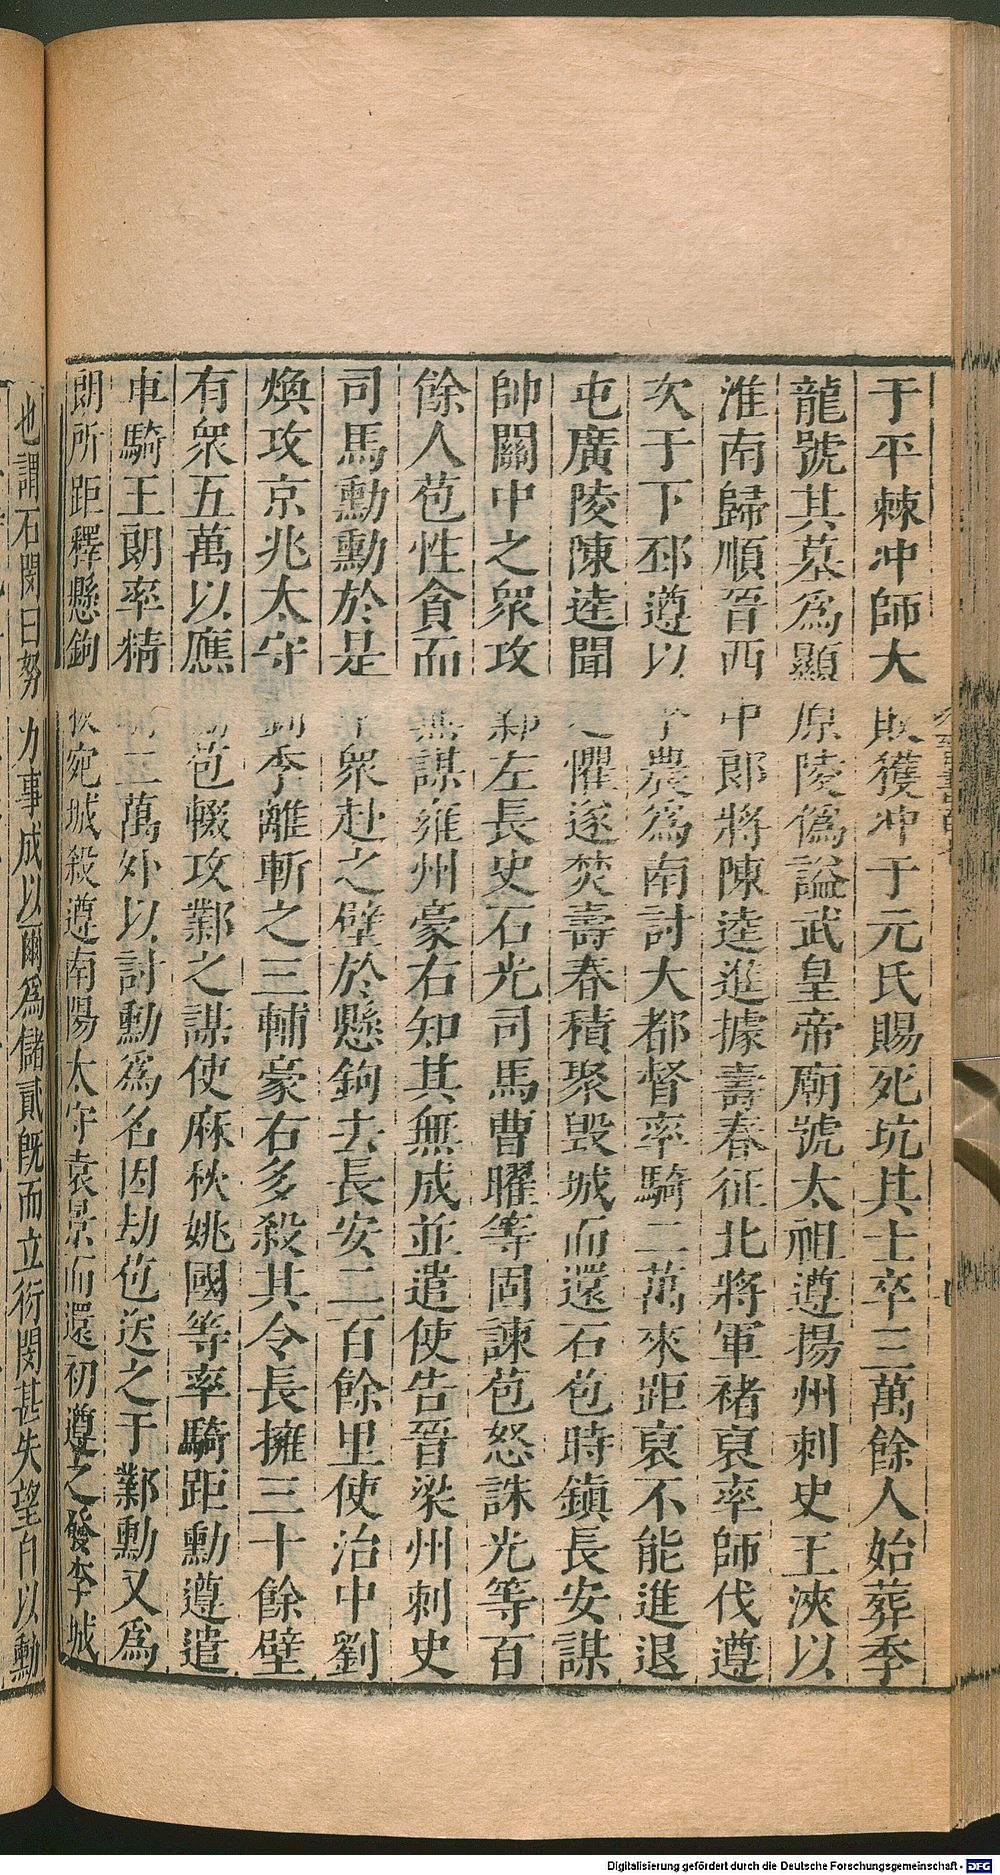 于平棘冲師大敗獲冲于元氏賜死坑其士卒三萬餘人始葬季
龍號其墓爲顯原陵僞謚武皇帝廟號太祖遵揚州刺史王浹以
淮南歸順晉西中郎將陳逵進據壽春征北將軍褚裒率師伐遵
次于下邳遵以李農爲南討大都督率騎二萬來距裒不能進退
屯廣陵陳逵聞之懼遂焚壽春積聚毀城而還石苞時鎮長安謀
帥關中之衆攻鄴左長史石光司馬曹曜等固諫苞怒誅光等百
餘人苞性貪而無謀雍州豪右知其無成並遣使告晉梁州刺史
司馬勳勳於是率衆赴之壁於懸鉤去長安二百餘里使治中劉
煥攻京兆太守劉季離斬之三輔豪右多殺其令長擁三十餘壁
有衆五萬以應勳苞輟攻鄴之謀使麻秋姚國等率騎距勳遵遣
車騎王朗率精騎二萬外以討勳爲名因劫苞送之于鄴勳又爲
朗所距釋懸鉤拔宛城殺遵南陽太守袁景而還初遵之發李城
也謂石閔曰努力事成以爾爲儲貳旣而立衍閔甚失望自以勳
Digitalisierung gefördert durch die Deutsche Forschungsgemeinschaft - DFG